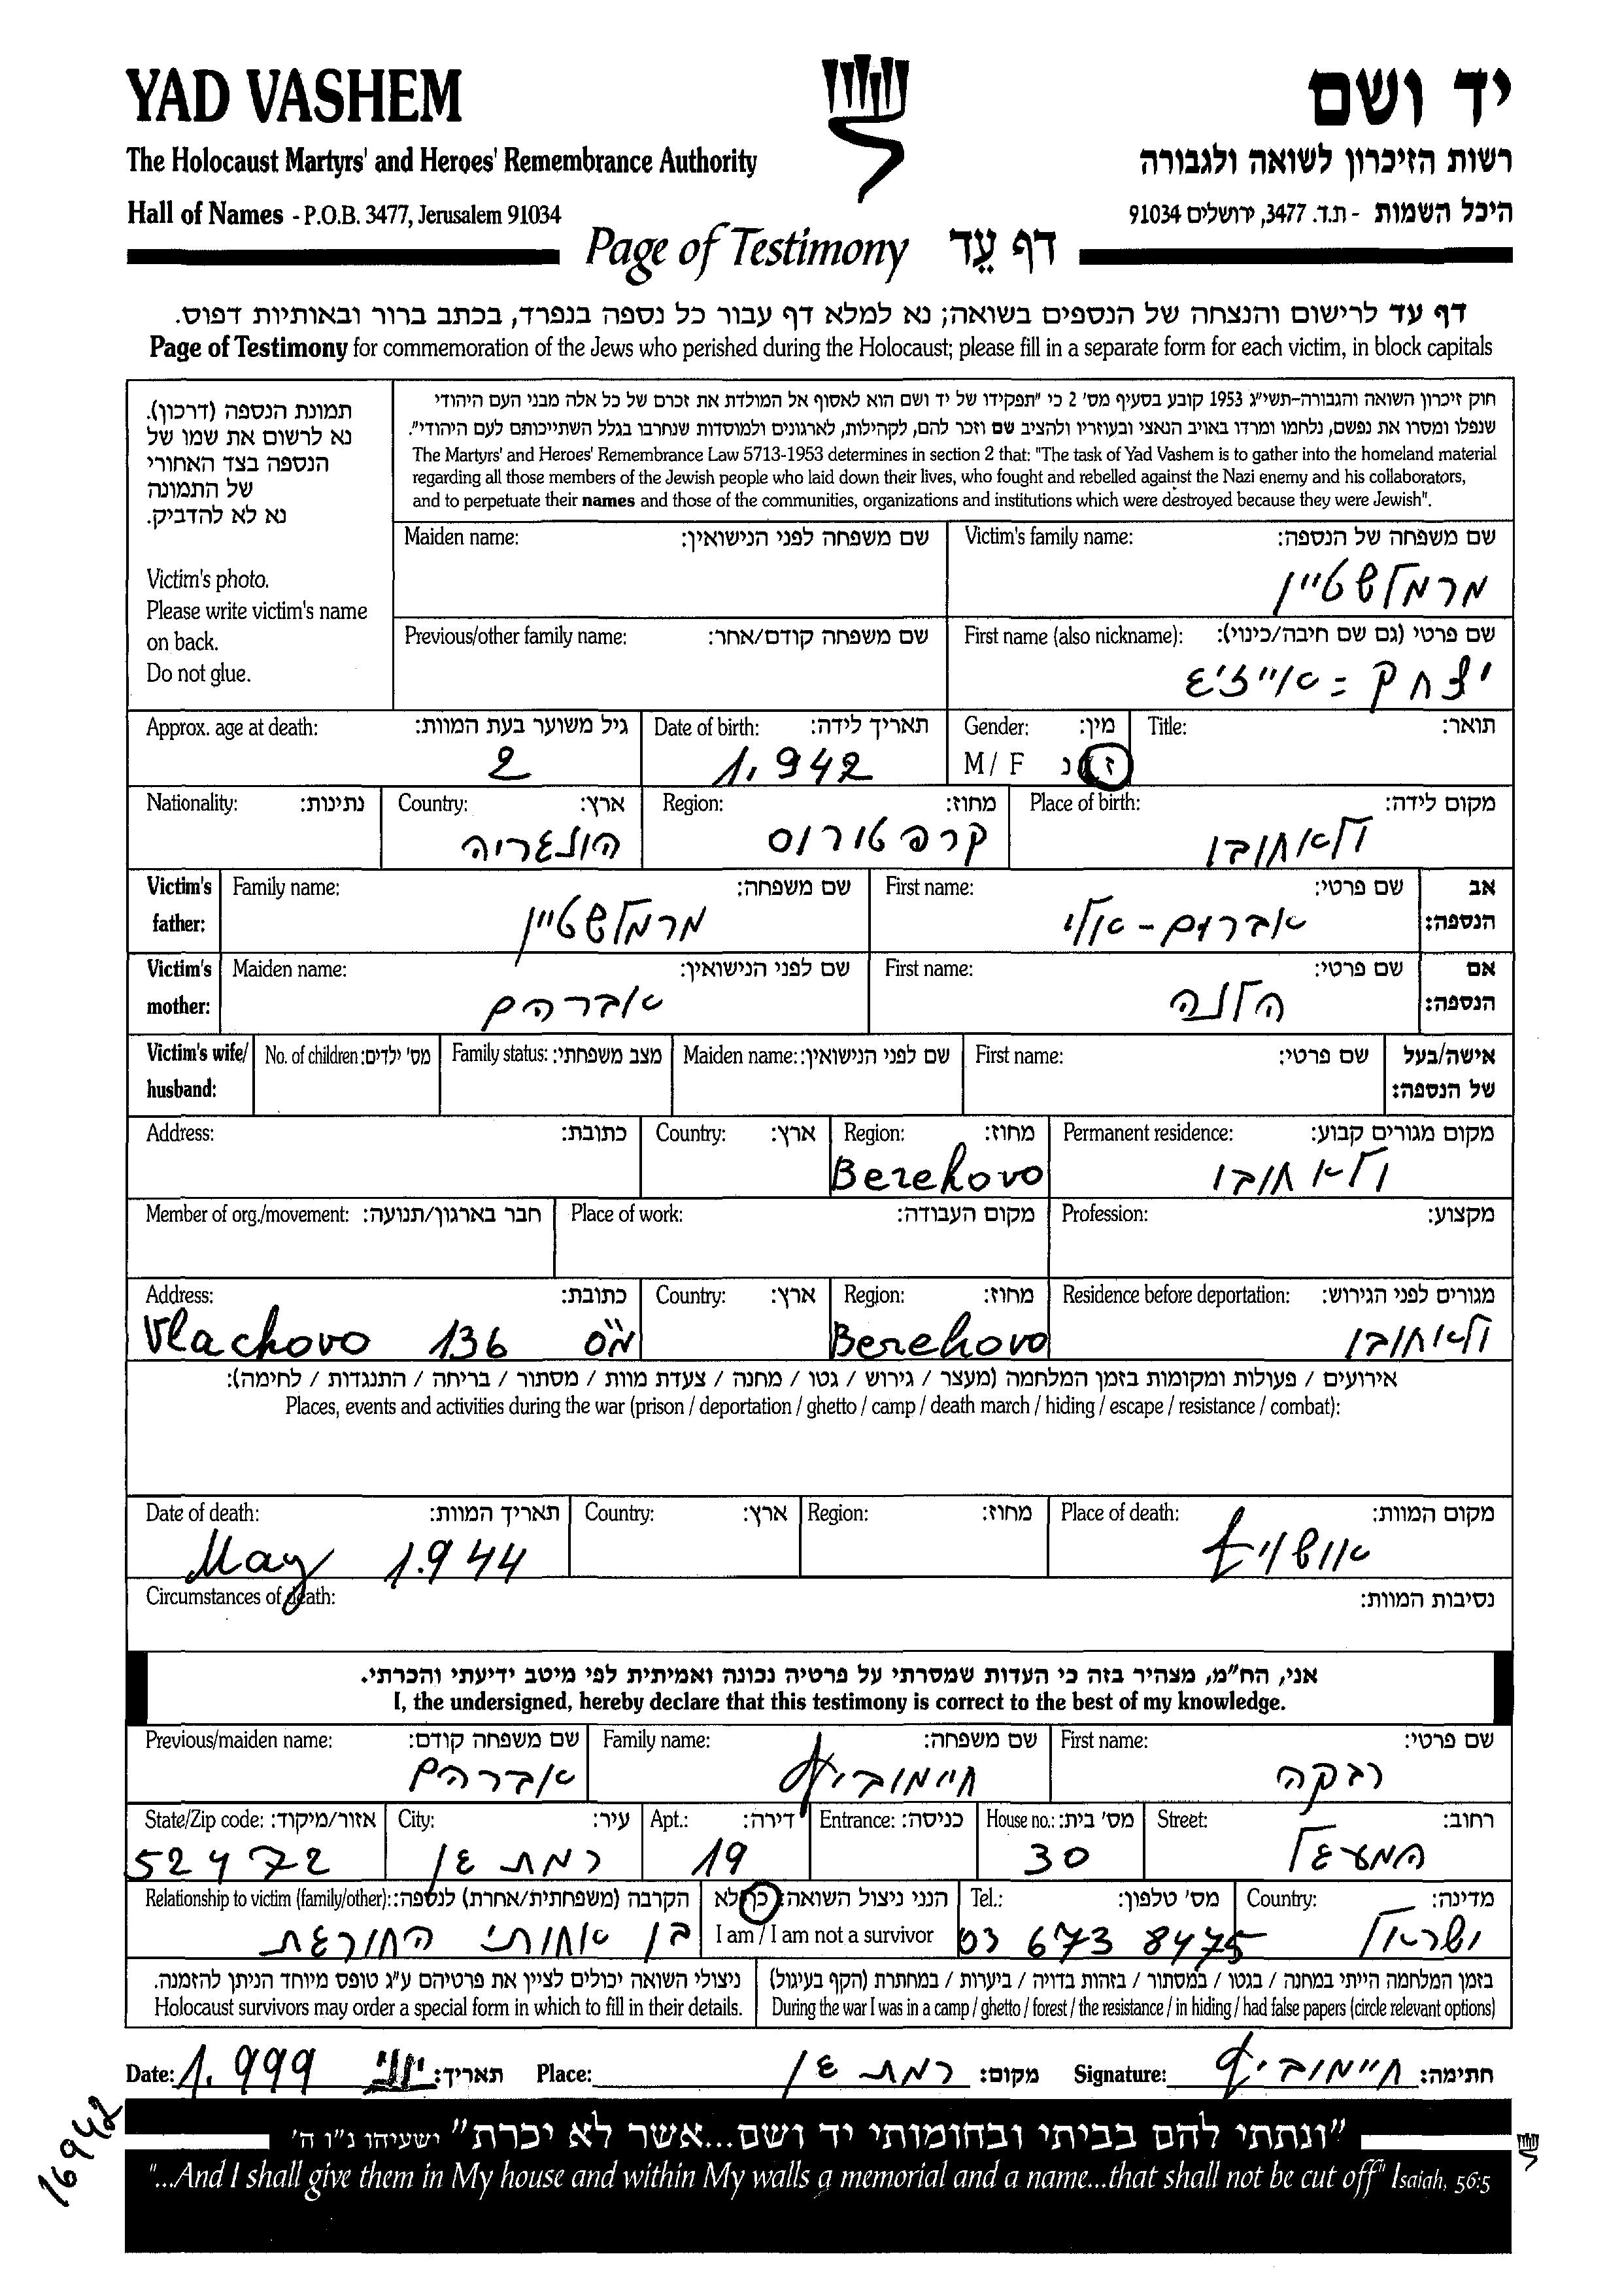 YAD VASHEM
יד ושם
The Holocaust Martyrs' and Heroes' Remembrance Authority
רשות הזיכרון לשואה ולגבורה
Hall of Names - P.O.B. 3477, Jerusalem 91034
היכל השמות - ת.ד. 3477, ירושלים 91034
Page of Testimony דף עֵד
דף עד לרישום והנצחה של הנספים בשואה; נא למלא דף עבור כל נספה בנפרד, בכתב ברור ובאותיות דפוס.
Page of Testimony for commemoration of the Jews who perished during the Holocaust; please fill in a separate form for each victim, in block capitals
תמונת הנספה (דרכון).
נא לרשום את שמו של
הנספה בצד האחורי
של התמונה
נא לא להדביק.
Victim's photo.
Please write victim's name
on back.
Do not glue.
חוק זיכרון השואה והגבורה-תשי"ג 1953 קובע בסעיף מס' 2 כי "תפקידו של יד ושם הוא לאסוף אל המולדת את זכרם של כל אלה מבני העם היהודי
שנפלו ומסרו את נפשם, נלחמו ומרדו באויב הנאצי ובעוזריו ולהציב שם וזכר להם, לקהילות, לארגונים ולמוסדות שנחרבו בגלל השתייכותם לעם היהודי".
The Martyrs' and Heroes' Remembrance Law 5713-1953 determines in section 2 that: "The task of Yad Vashem is to gather into the homeland material
regarding all those members of the Jewish people who laid down their lives, who fought and rebelled against the Nazi enemy and his collaborators,
and to perpetuate their names and those of the communities, organizations and institutions which were destroyed because they were Jewish".
Victim's family name: שם משפחה של הנספה:
מרמלשטיין
Maiden name: שם משפחה לפני הנישואין:
First name (also nickname): שם פרטי (גם שם חיבה/כינוי):
יצחק = אייזיג
Previous/other family name: שם משפחה קודם/אחר:
Title: תואר:
Gender: מין:
M / F ז נ
Date of birth: תאריך לידה:
1.942
Approx. age at death: גיל משוער בעת המוות:
2
Place of birth: מקום לידה:
ולאחובו
Region: מחוז:
קרפטורוס
Country: ארץ:
הונגריה
Nationality: נתינות:
Victim's father: אב הנספה:
First name: שם פרטי:
אברום - אלי
Family name: שם משפחה:
מרמלשטיין
Victim's mother: אם הנספה:
First name: שם פרטי:
הלנה
Maiden name: שם לפני הנישואין:
אברהם
Victim's wife/ husband: אישה/בעל של הנספה:
First name: שם פרטי:
Maiden name: שם לפני הנישואין:
Family status: מצב משפחתי:
No. of children: מס' ילדים:
Permanent residence: מקום מגורים קבוע:
ולאחובו
Region: מחוז:
Berehovo
Country: ארץ:
Address: כתובת:
Profession: מקצוע:
Place of work: מקום העבודה:
Member of org./movement: חבר בארגון/תנועה:
Residence before deportation: מגורים לפני הגירוש:
ולאחובו
Region: מחוז:
Berehovo
Country: ארץ:
Address: כתובת:
Vlachovo 136 מס
אירועים / פעולות ומקומות בזמן המלחמה (מעצר / גירוש / גטו / מחנה / צעדת מוות / מסתור / בריחה / התנגדות / לחימה):
Places, events and activities during the war (prison / deportation / ghetto / camp / death march / hiding / escape / resistance / combat):
Place of death: מקום המוות:
אושויץ
Region: מחוז:
Country: ארץ:
Date of death: תאריך המוות:
May 1.944
Circumstances of death: נסיבות המוות:
אני, הח"מ, מצהיר בזה כי העדות שמסרתי על פרטיה נכונה ואמיתית לפי מיטב ידיעתי והכרתי.
I, the undersigned, hereby declare that this testimony is correct to the best of my knowledge.
First name: שם פרטי:
רבקה
Family name: שם משפחה:
חיימוביץ
Previous/maiden name: שם משפחה קודם:
אברהם
Street: רחוב:
המעגל
House no.: מס' בית:
30
Entrance: כניסה:
Apt.: דירה:
19
City: עיר:
רמת גן
State/Zip code: אזור/מיקוד:
52472
Country: מדינה:
ישראל
Tel.: מס' טלפון:
03 673 8475
הנני ניצול השואה: כן לא
I am / I am not a survivor
Relationship to victim (family/other): הקרבה (משפחתית/אחרת) לנספה:
בן אחותי החורגת
בזמן המלחמה הייתי במחנה / בגטו / במסתור / בזהות בדויה / ביערות / במחתרת (הקף בעיגול)
During the war I was in a camp / ghetto / forest / the resistance / in hiding / had false papers (circle relevant options)
ניצולי השואה יכולים לציין את פרטיהם ע"ג טופס מיוחד הניתן להזמנה.
Holocaust survivors may order a special form in which to fill in their details.
Date: 1.999 יוני תאריך: Place: רמת גן מקום: Signature: חיימוביץ חתימה:
16942
"ונתתי להם בביתי ובחומותי יד ושם...אשר לא יכרת" ישעיהו נ"ו ה'
"...And I shall give them in My house and within My walls a memorial and a name...that shall not be cut off" Isaiah, 56:5